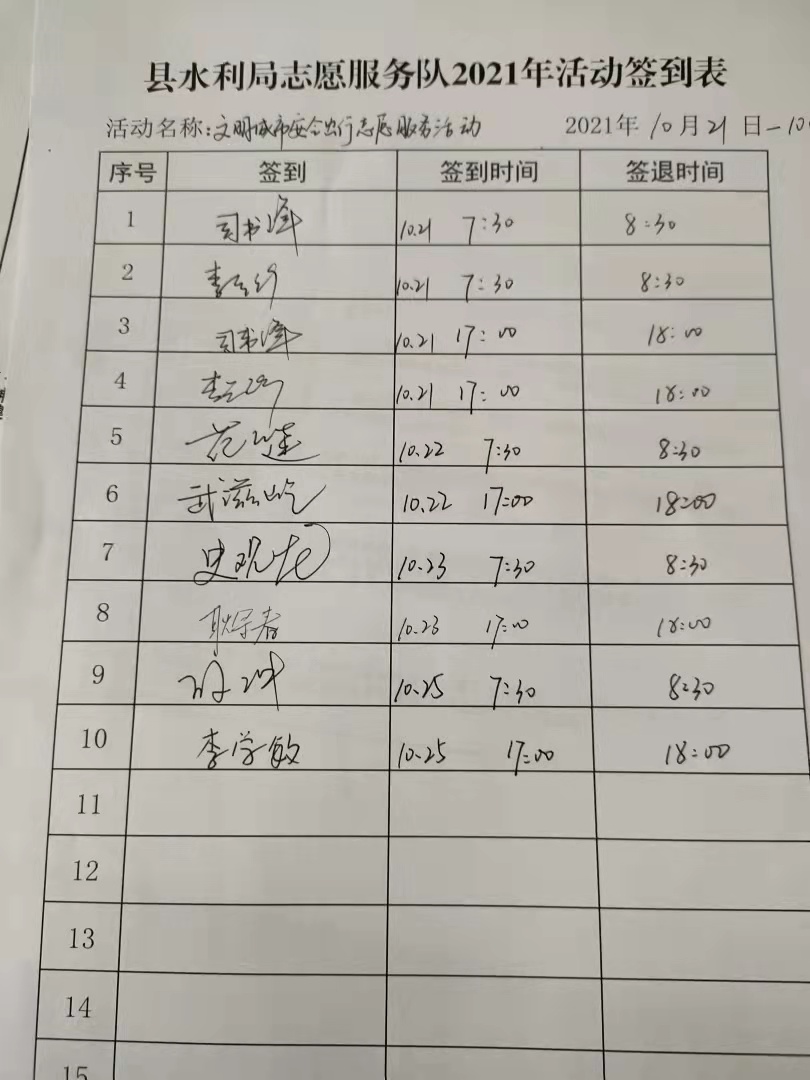 县水利局志愿服务队2021年活动签到表
活动名称:文明城市安全出行志愿服务活动 2021年10月21日-10
序号 签到 签到时间 签退时间
1 司书峰 10.21 7:30 8:30
2 10.21 7:30 8:30
3 司书峰 10.21 17:00 18:00
4 10.21 17:00 18:00
5 10.22 7:30 8:30
6 武滋屹 10.22 17:00 18:00
7 史观龙 10.23 7:30 8:30
8 10.23 17:00 18:00
9 10.25 7:30 8:30
10 李学敏 10.25 17:00 18:00
11
12
13
14
15